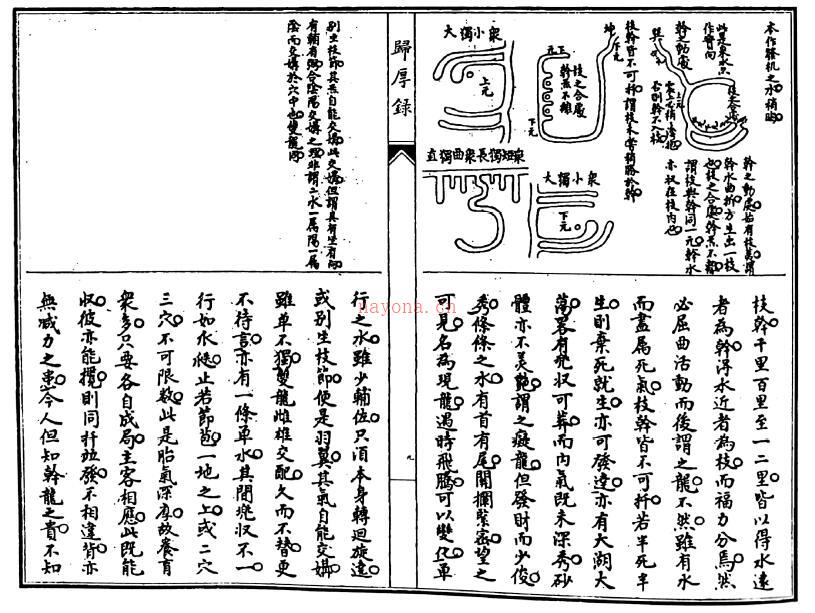 本作發机之水
作會向
幹之動處
巽
坤
下元
枝幹皆不可扦
大獨小衆
上元
枝之合處
幹無不離
下元
直獨曲衆長獨短衆
大獨小衆
下元
幹之動處
幹水曲折方生出一枝
也枝之合處幹無不離
謂枝與幹同一元幹水
亦收在枝內也
枝幹千里百里至一二里皆以得水遠
者為幹得水近者為枝而福力分焉然
必屈曲活動而後謂之龍不然雖有水
而盡属死氣枝幹皆不可扦若半死半
生則棄死就生亦可發達亦有大湖大
蕩畧有兜収可葬而內氣既未深秀砂
體亦不美艷謂之癡龍但發財而少俊
秀條條之水有首有尾開攔緊密望之
可見名為現龍遇時飛騰可以變化单
歸厚錄
九
別生枝節其無自能交媾此交媾但謂具有
有輔有弼合陰陽交媾之理非謂二水一属陽一属
陰而交媾於穴中也雙龍同
行之水雖少輔佐只湏本身轉廻旋遶
或别生枝節便是羽翼其氣自能交媾
雖单不獨雙龍雌雄交配久而不替更
不待言亦有一條单水其間兜収不一
行如水𣲖止若節苞一地之上或二穴
三穴不可限数此是胎氣深厚故養育
衆多只要各自成局主客相應此既能
収彼亦能攬則同扦並發不相違背亦
無减力之患今人但知幹龍之貴不知
nayona.cn